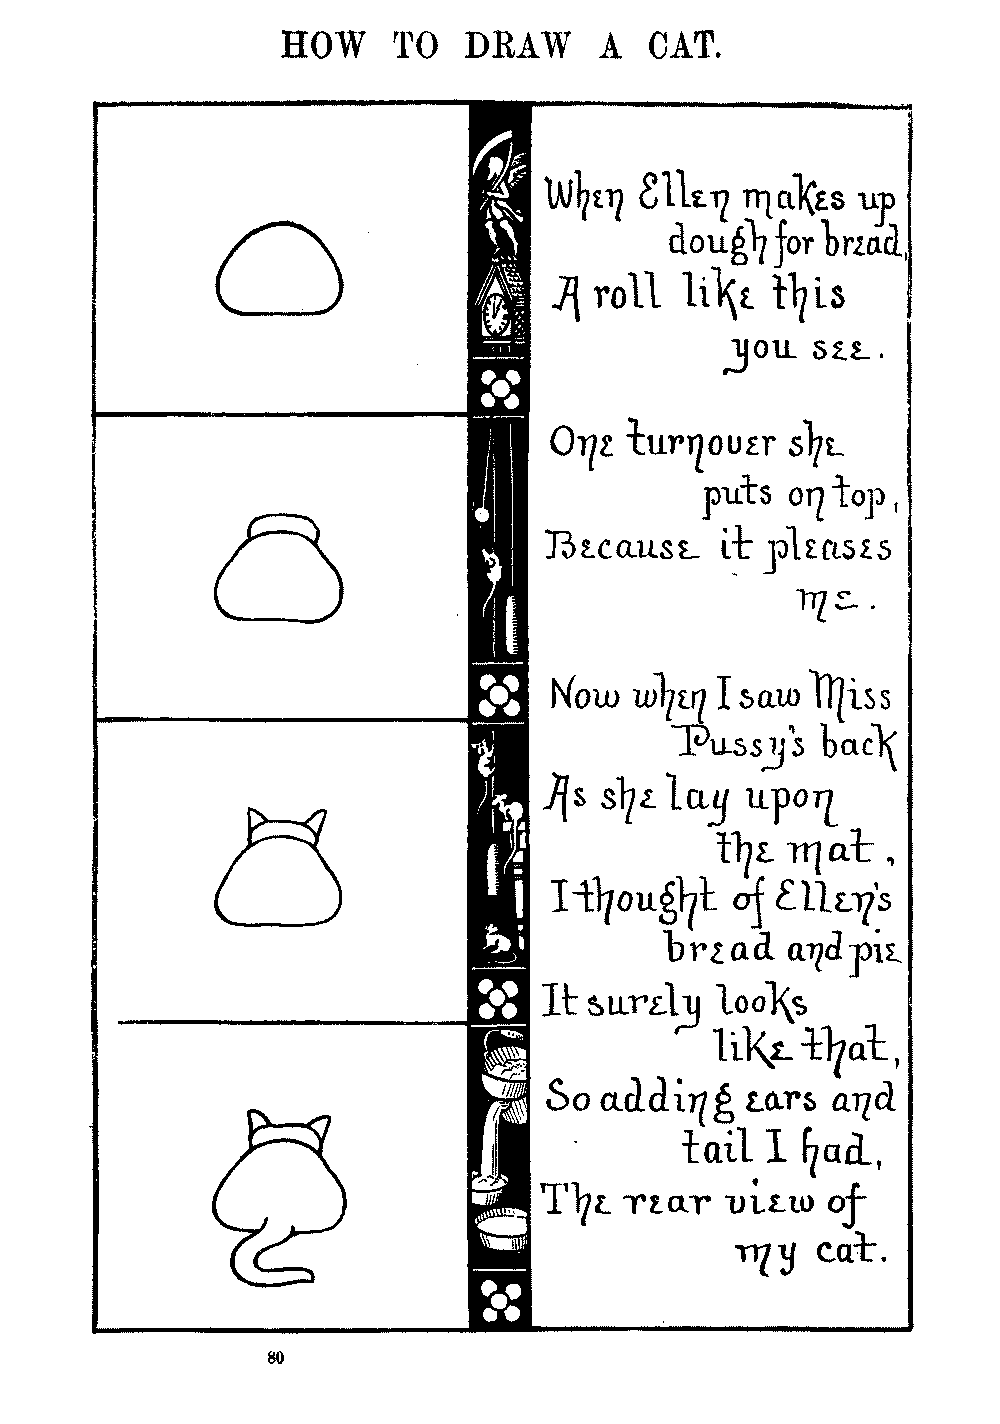 HOW TO DRAW A CAT.
When Ellen makes up
dough for bread,
A roll like this
you see.
One turnover she
puts on top,
Because it pleases
me.
Now when I saw Miss
Pussy's back
As she lay upon
the mat,
I thought of Ellen's
bread and pie
It surely looks
like that,
So adding ears and
tail I had,
The rear view of
my cat.
80